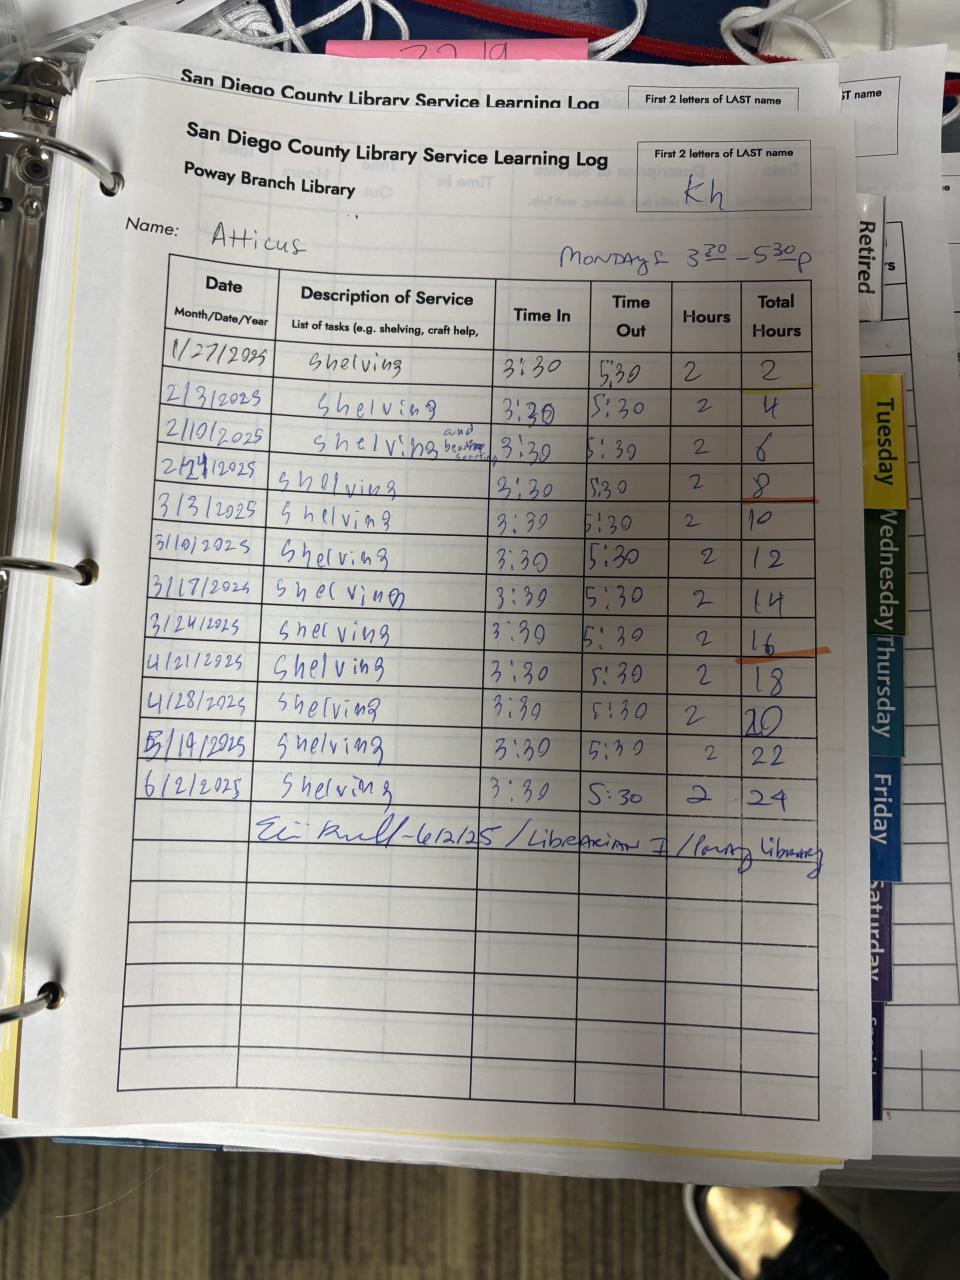 22 19
San Diego County Library Service Learning Log
First 2 letters of LAST name
ST name
San Diego County Library Service Learning Log
First 2 letters of LAST name
Poway Branch Library
Kh
Name: Atticus
MONDAYS 3:30 - 5:30p
Date Month/Date/Year Description of Service List of tasks (e.g. shelving, craft help, Time In Time Out Hours Total Hours
1/27/2025 Shelving 3:30 5:30 2 2
2/3/2025 Shelving 3:30 5:30 2 4
2/10/2025 Shelving and 3:30 5:30 2 6
2/24/2025 Shelving 3:30 5:30 2 8
3/3/2025 Shelving 3:30 5:30 2 10
3/10/2025 Shelving 3:30 5:30 2 12
3/17/2025 Shelving 3:30 5:30 2 14
3/24/2025 Shelving 3:30 5:30 2 16
4/21/2025 Shelving 3:30 5:30 2 18
4/28/2025 Shelving 3:30 5:30 2 20
5/19/2025 Shelving 3:30 5:30 2 22
6/2/2025 Shelving 3:30 5:30 2 24
6/2/25 / LIBRARIAN I / Poway Library
Retired
Tuesday
Wednesday
Thursday
Friday
Saturday